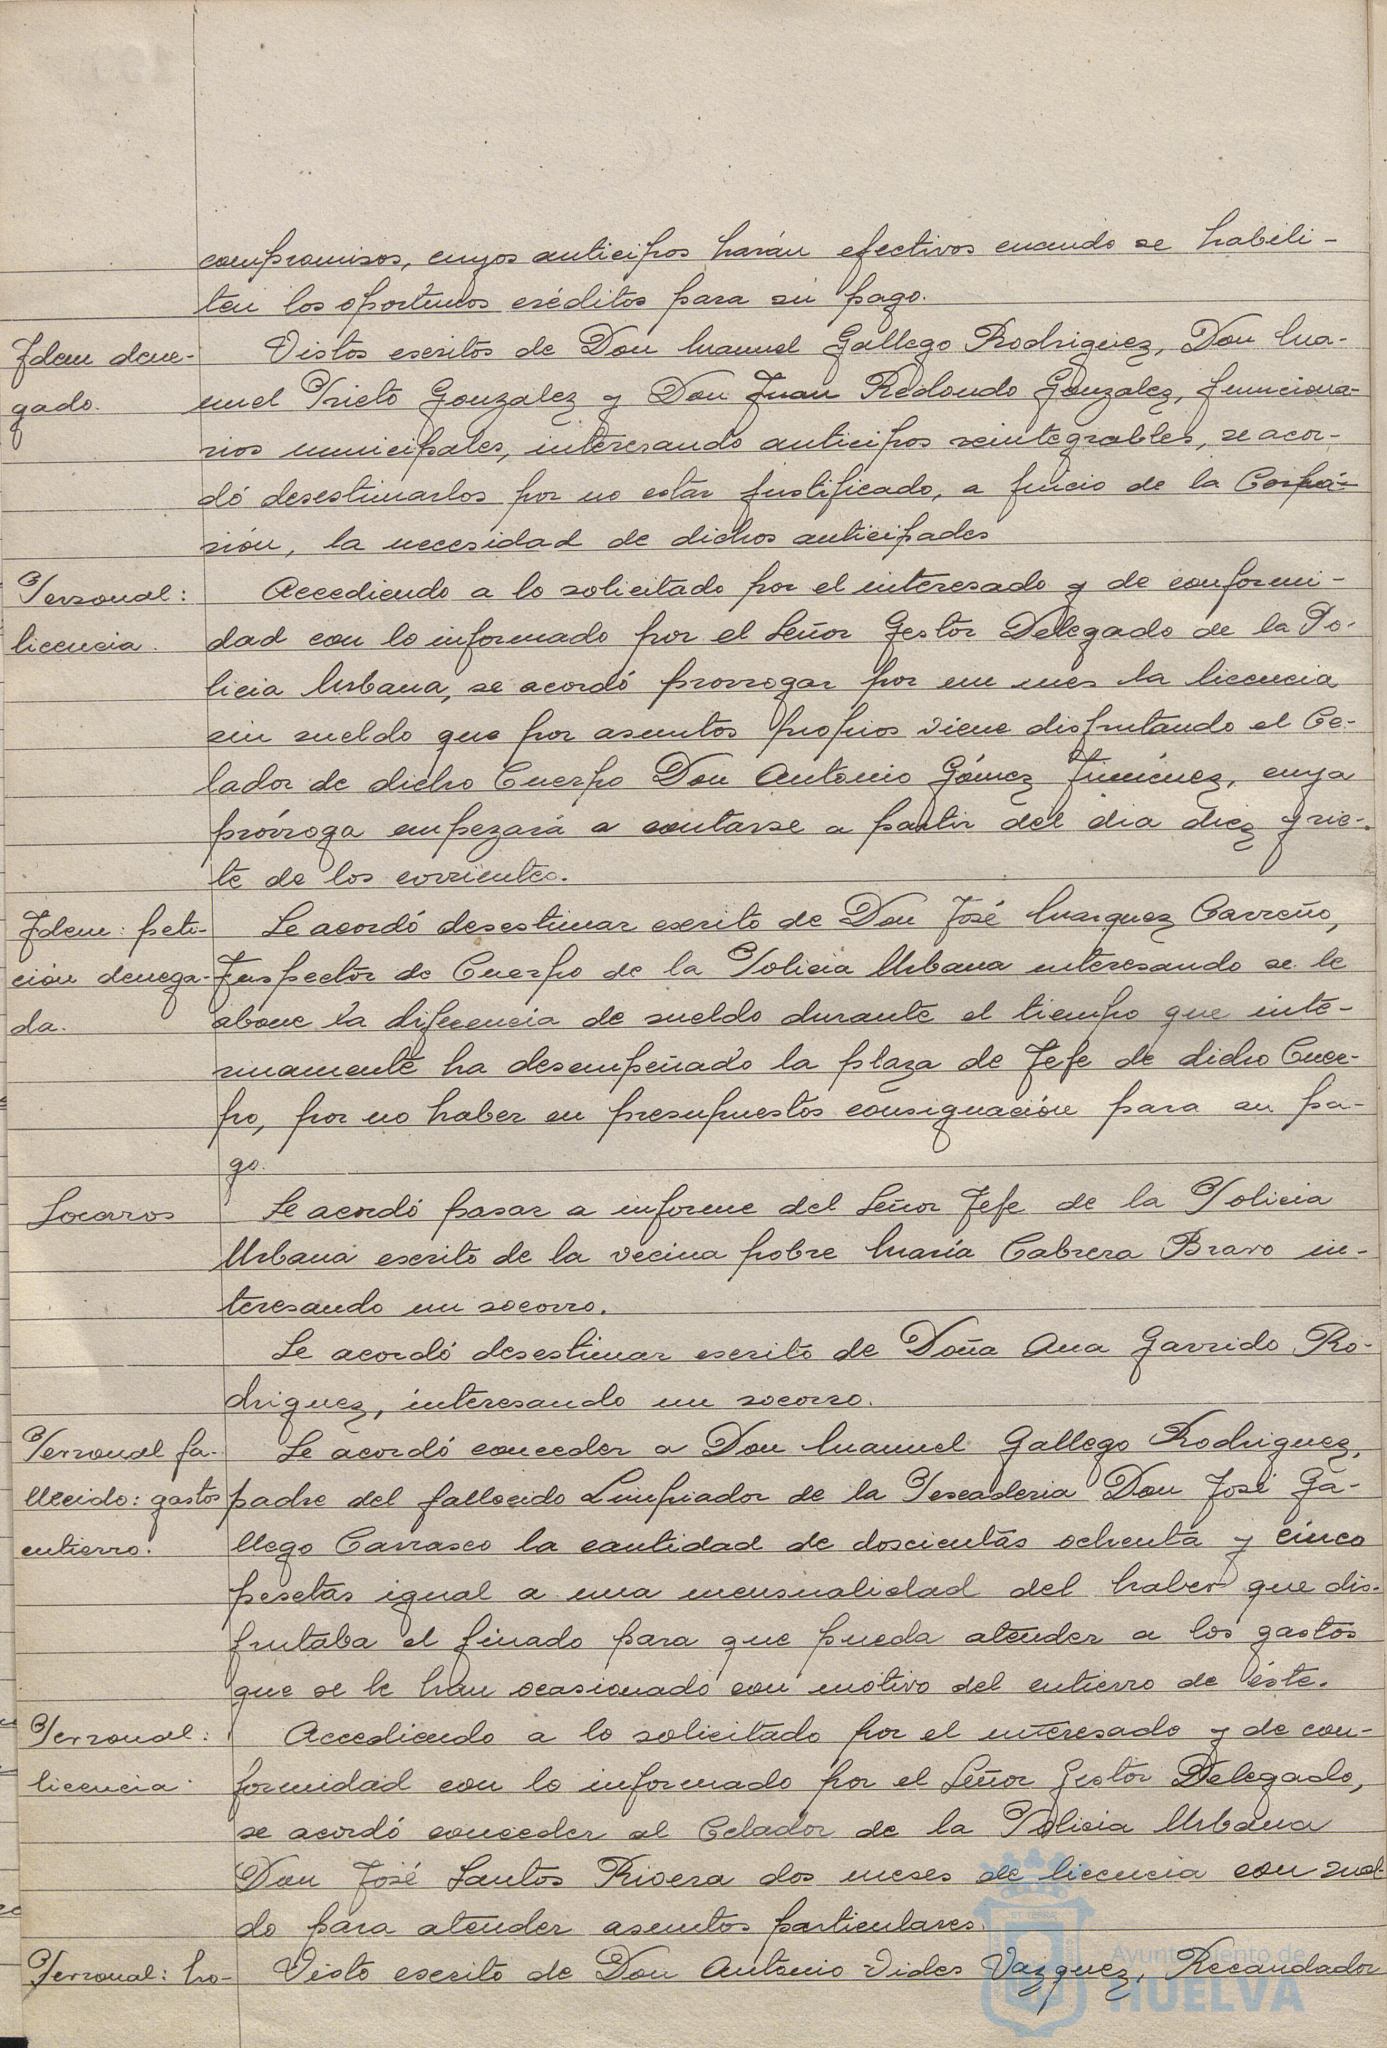 compromisos, cuyos anticipos harán efectivos cuando se habili-
ten los oportunos créditos para su pago.
Idem dene-
gado.
Vistos escritos de Don Manuel Gallego Rodriguez, Don Ma-
nuel Prieto Gonzalez y Don Juan Redondo Gonzalez, funciona-
rios municipales, interesando anticipos reintegrables, se acor-
dó desestimarlos por no estar justificado, a juicio de la Corpo-
sión, la necesidad de dichos anticipades
Personal:
licencia.
Accediendo a lo solicitado por el interesado y de conformi-
dad con lo informado por el Señor Gestor Delegado de la Po-
licia Urbana, se acordó prorrogar por un mes la licencia
sin sueldo que por asuntos propios viene disfrutando el Ce-
lador de dicho Cuerpo Don Antonio Gómez Jiménez, cuya
prórroga empezará a contarse a partir del dia diez y sie-
te de los corrientes.
Idem: peti-
ción denega-
da.
Se acordó desestimar escrito de Don José Marquez Carreño,
Inspector de Cuerpo de la Policia Urbana interesando se le
abone la diferencia de sueldo durante el tiempo que inte-
rinamente ha desempeñado la plaza de Jefe de dicho Cuer-
po, por no haber en presupuestos consignación para su pa-
go.
Socorros
Se acordó pasar a informe del Señor Jefe de la Policia
Urbana escrito de la vecina pobre Maria Cabrera Bravo in-
teresando un socorro.
Se acordó desestimar escrito de Doña Ana Garrido Ro-
driguez, interesando un socorro.
Personal fa-
llecido: gastos
entierro.
Se acordó conceder a Don Manuel Gallego Rodriguez,
padre del fallecido Limpiador de la Pescaderia Don José Ga-
llego Carrasco la cantidad de doscientas ochenta y cinco
pesetas igual a una mensualidad del haber que dis-
frutaba el finado para que pueda atender a los gastos
que se le han ocasionado con motivo del entierro de éste.
Personal:
licencia.
Accediendo a lo solicitado por el interesado y de con-
formidad con lo informado por el Señor Gestor Delegado,
se acordó conceder al Celador de la Policia Urbana
Don José Santos Rivera dos meses de licencia con suel-
do para atender asuntos particulares.
Personal: ho-
Visto escrito de Don Antonio Vides Vazquez, Recaudador
Ayuntamiento de
HUELVA